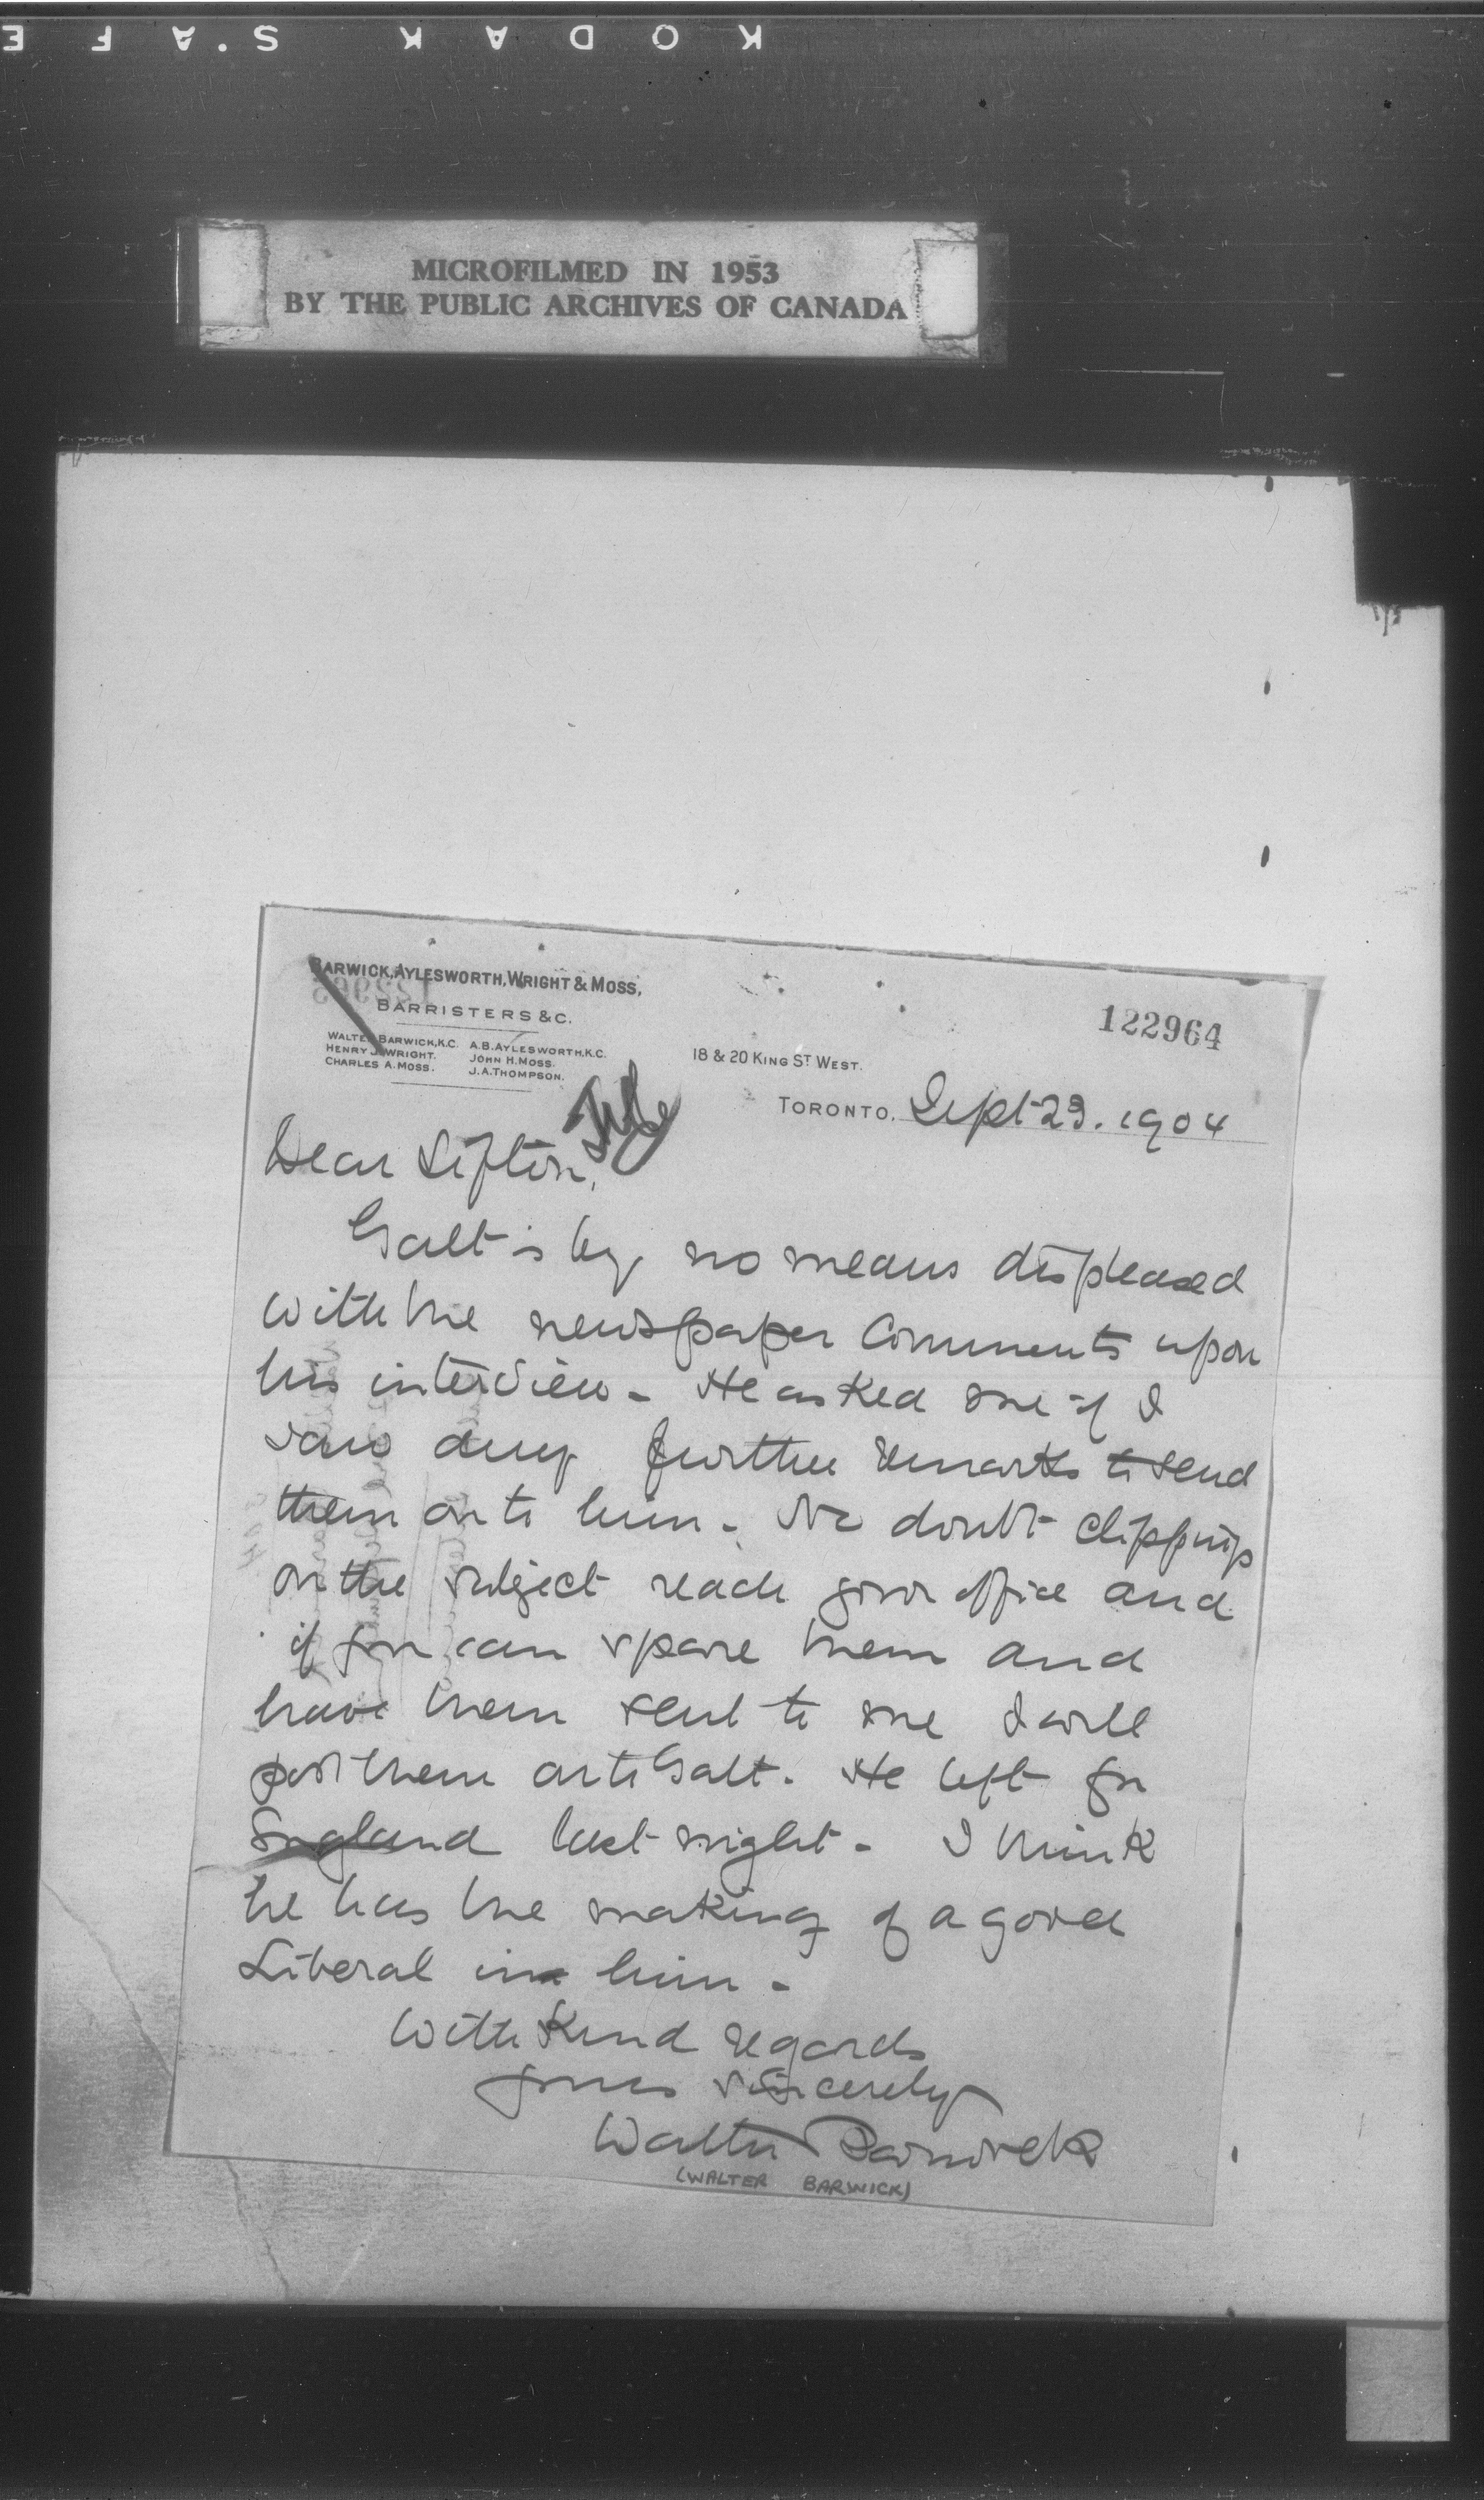 KODAK S.AFE
MICROFILMED IN 1953
BY THE PUBLIC ARCHIVES OF CANADA
BARWICK, AYLESWORTH, WRIGHT & MOSS,
BARRISTERS &C.
122964
WALTER BARWICK, K.C. A.B. AYLESWORTH, K.C.
HENRY J. WRIGHT. JOHN H. MOSS.
CHARLES A. MOSS. J.A. THOMPSON.
18 & 20 KING ST WEST.
TORONTO, Sept 23. 1904
Dear Sifton,
Galt is by no means displeased
with the newspaper comments upon
his interview - He asked me if I
saw any further remarks to send
them on to him - No doubt clippings
on the subject reach your office and
if you can spare them and
have them sent to me I will
post them on to Galt. He left for
England last night - I think
he has the making of a good
Liberal in him -
With kind regards
yours sincerely
Walter Barwick
(WALTER BARWICK)